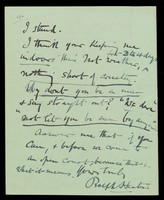 I stand.
I think your keeping me
indoors this hot weather, is
nothing short of cruelty.
Why don't you be a man
& say straight out? "We have
not let you be seen by any
Answer me that if you
can, & before we come
an open court, because that is
what it means, Yours truly
Ralph